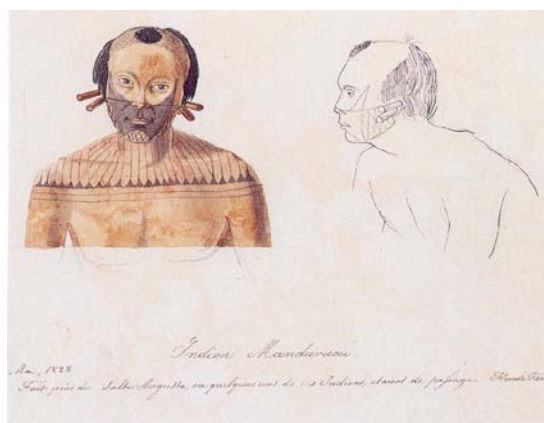 Indien
Mai, 1828
Fait près du Salto Augusto, ou quelques uns de ces Indiens, étaient de passage.